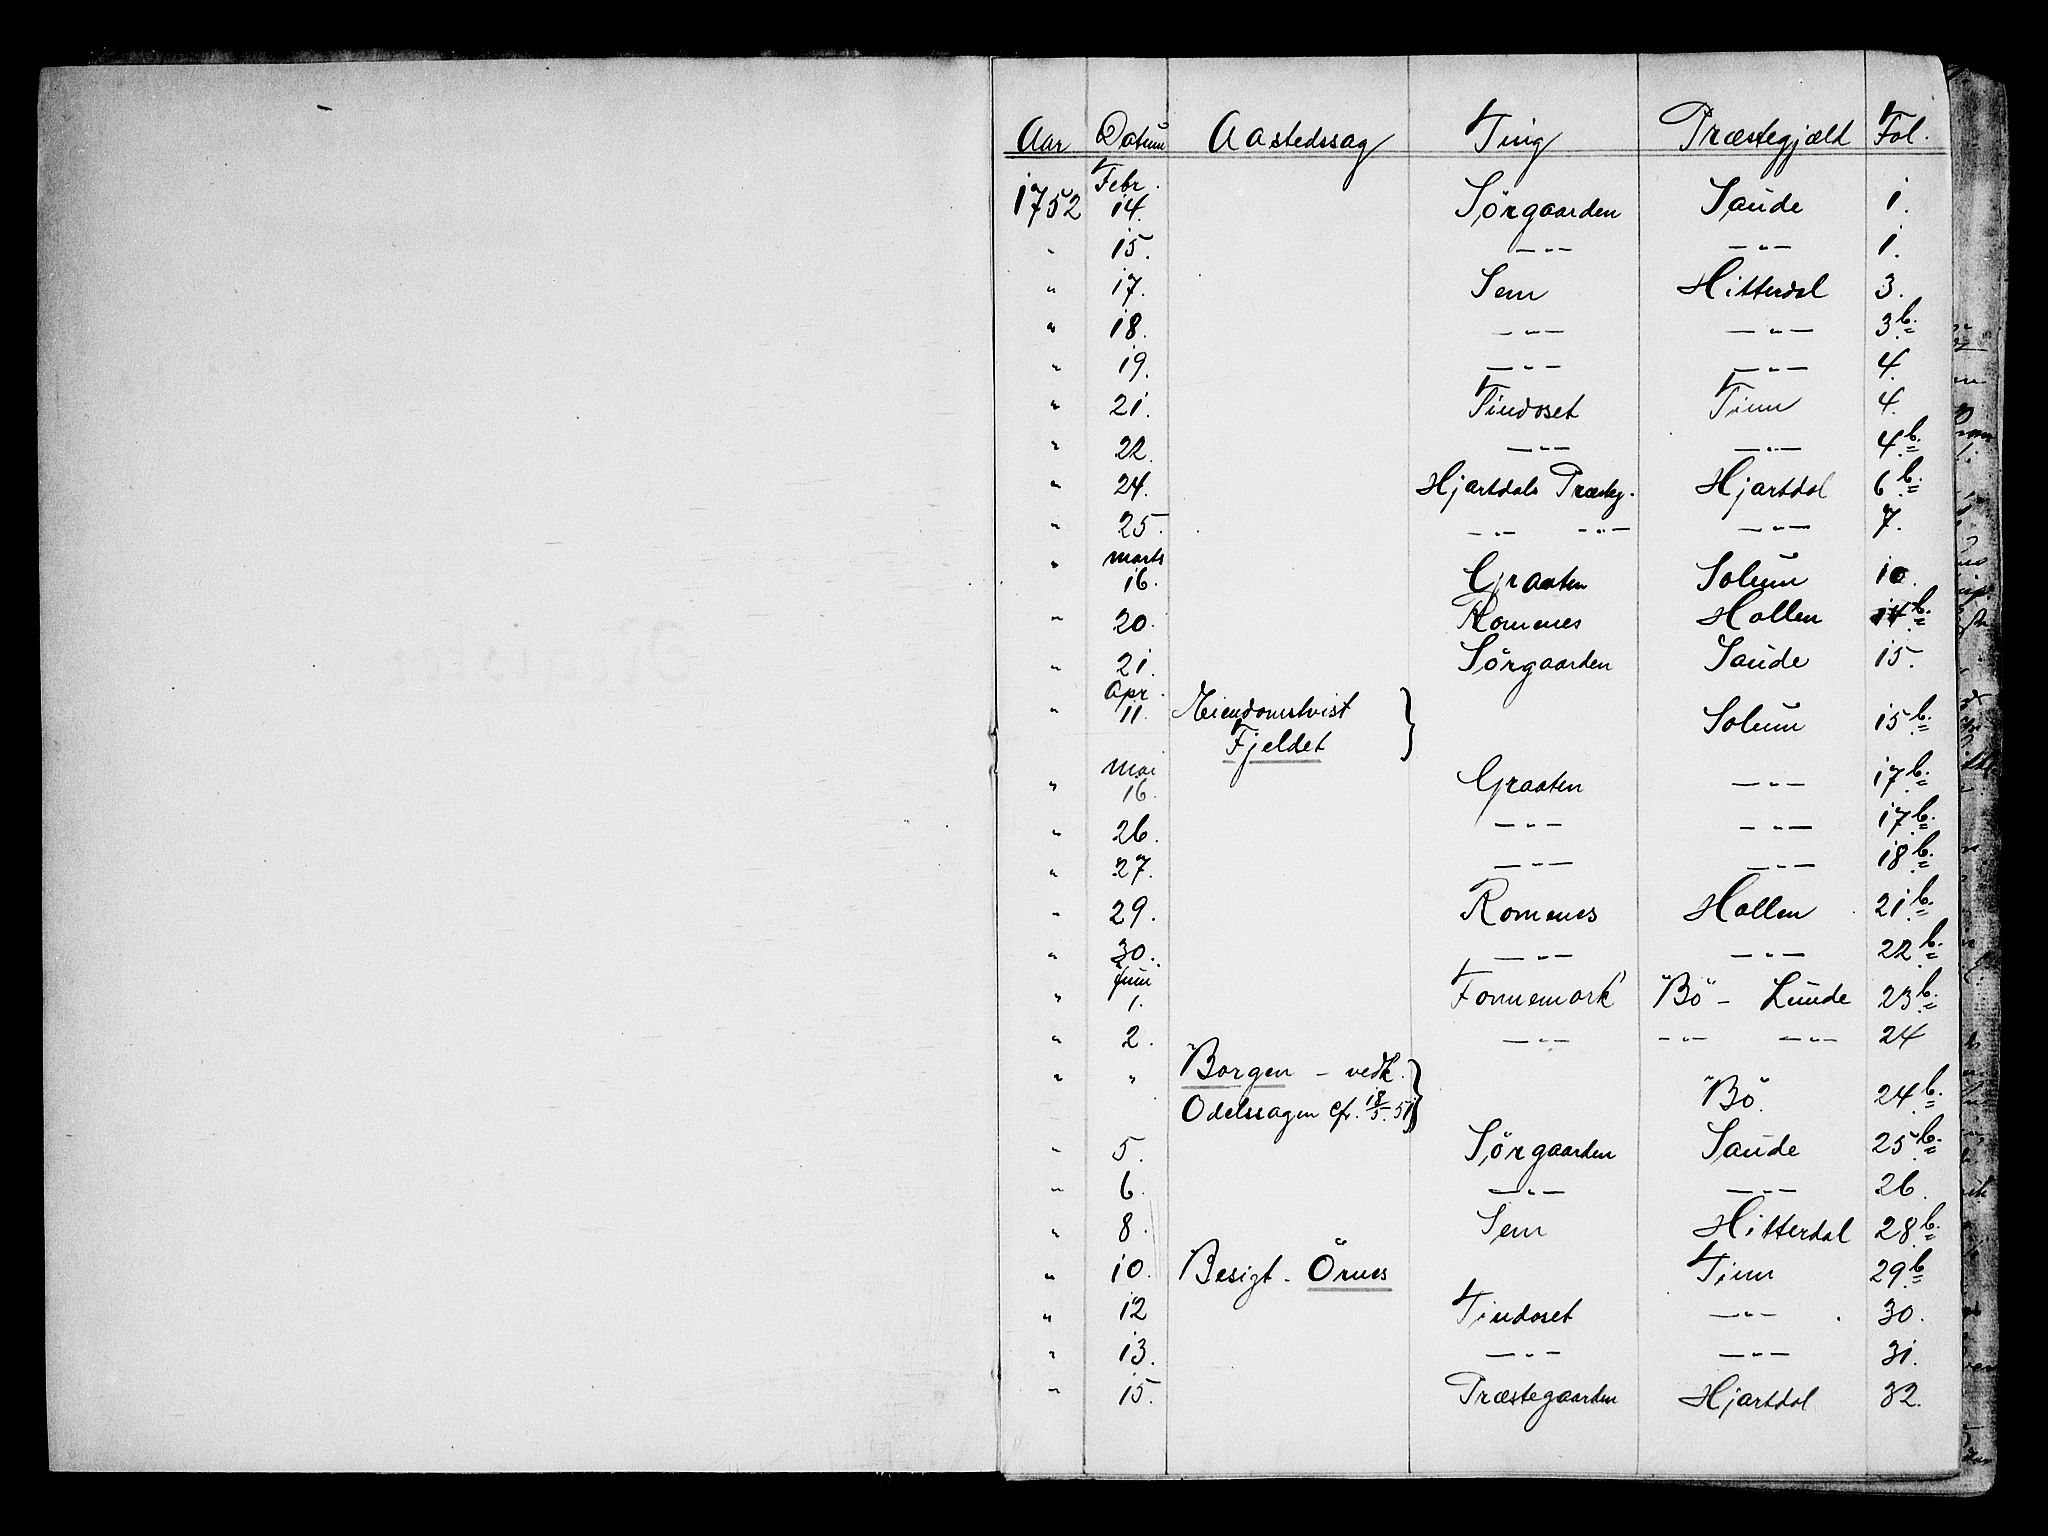 Aar Datum Aastedssag Ting Præstegjæld Fol.
Febr.
1752 14. Sörgaarden Saude 1.
" 15. — " — — " — 1.
" 17. Sem Hitterdal 3.
" 18. — " — — " — 3 b.
" 19. — " — — " — 4.
" 21. Tindoset Tinn 4.
" 22. — " — — " — 4 b.
" 24. Hjartdals Præsteg. Hjartdal 6 b.
" 25. — " — — " — — " — 7.
" Marts
16. Graaten Solum 10.
" 20. Romenes Hollen 14 b.
" 21. Sörgaarden Saude 15.
Apr.
" 11. Eiendomstvist Solum 15 b.
Fjeldet
Mai
" 16. Graaten — " — 17 b.
" 26. — " — — " — 17 b.
" 27. — " — — " — 18 b.
" 29. Romenes Hollen 21 b.
" 30. — " — — " — 22 b.
Juni
" 1. Fonnemork Bö - Lunde 23 b.
" 2. — " — — " — — " — 24
" " Borgen - vedk.
Odelssagen cfr. 18/5. 51 Bö. 24 b.
" 5. Sörgaarden Saude 25 b.
" 6. — " — — " — 26.
" 8. Sem Hitterdal 28 b.
" 10. Besigt. Örnes Tinn 29 b.
" 12 Tindoset — " — 30.
" 13. — " — — " — 31.
" 15. Præstegaarden Hjartdal 32.